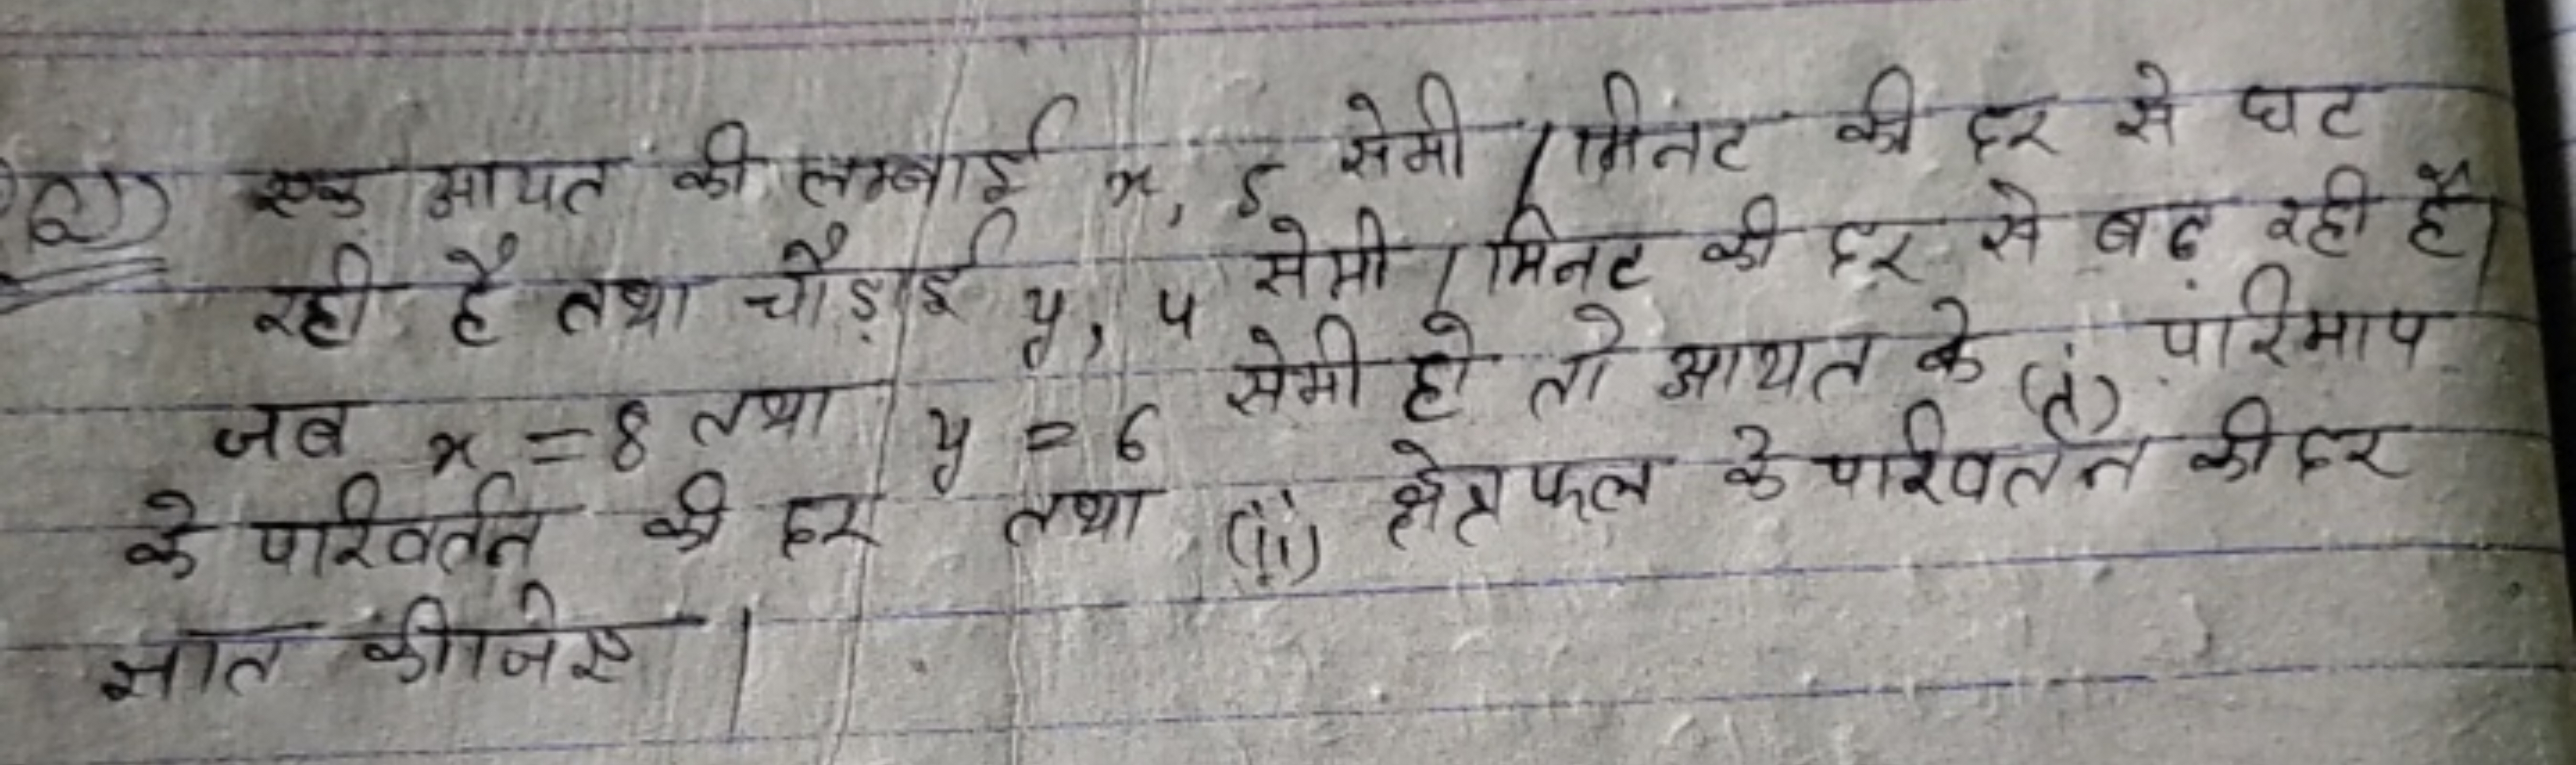 (2) एक आयत की लम्बाई x, 5 सेमी / मिनट की दर से घट
रही है तथा चौड़ाई y, 4 सेमी / मिनट की दर से बढ़ रही है।
जब x = 8 तथा y = 6 सेमी हो तो आयत के (i) परिमाप
के परिवर्तन की दर तथा (ii) क्षेत्रफल के परिवर्तन की दर
ज्ञात कीजिए |